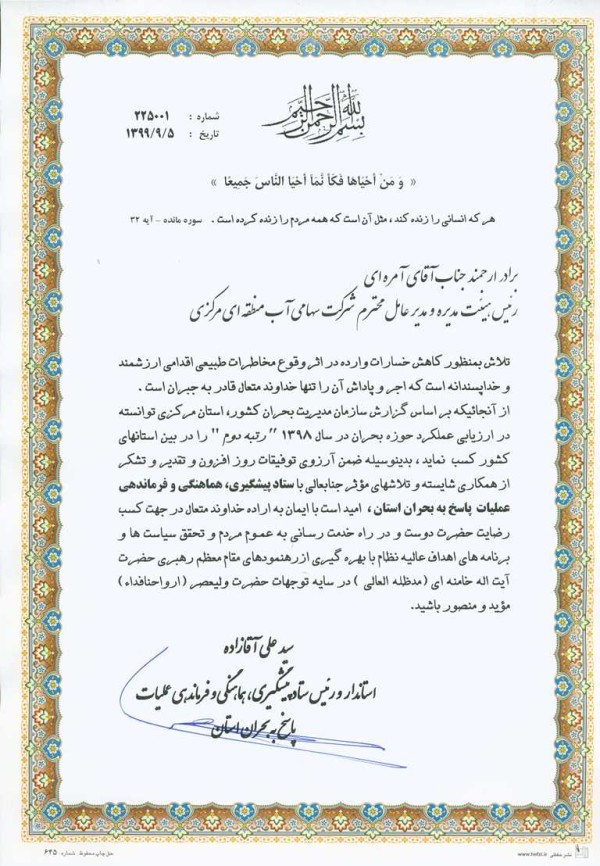 بسم الله الرحمن الرحیم
شماره : ۲۲۵۰۰۱
تاریخ : ۱۳۹۹/۹/۵
« وَ مَنْ أحْیَاهَا فَکَأَ نَّمَا أحْیَا النَّاسَ جَمِیعًا »
هر که انسانی را زنده کند ، مثل آن است که همه مردم را زنده کرده است . سوره مائده - آیه ۳۲
برادر ارجمند جناب آقای آمره ای
رئیس هیئت مدیره و مدیر عامل محترم شرکت سهامی آب منطقه ای مرکزی
تلاش بمنظور کاهش خسارات وارده در اثر وقوع مخاطرات طبیعی اقدامی ارزشمند
و خداپسندانه است که اجر و پاداش آن را تنها خداوند متعال قادر به جبران است .
از آنجائیکه بر اساس گزارش سازمان مدیریت بحران کشور، استان مرکزی توانسته
در ارزیابی عملکرد حوزه بحران در سال ۱۳۹۸ " رتبه دوم " را در بین استانهای
کشور کسب نماید ، بدینوسیله ضمن آرزوی توفیقات روز افزون و تقدیر و تشکر
از همکاری شایسته و تلاشهای مؤثر جنابعالی با ستاد پیشگیری، هماهنگی و فرماندهی
عملیات پاسخ به بحران استان ، امید است با ایمان به اراده خداوند متعال در جهت کسب
رضایت حضرت دوست و در راه خدمت رسانی به عموم مردم و تحقق سیاست ها و
برنامه های اهداف عالیه نظام با بهره گیری از رهنمودهای مقام معظم رهبری حضرت
آیت اله خامنه ای (مدظله العالی ) در سایه توجهات حضرت ولیعصر (ارواحنافداء)
مؤید و منصور باشید.
سید علی آقازاده
استاندار و رئیس ستاد پیشگیری، هماهنگی و فرماندهی عملیات
پاسخ به بحران استان
حق چاپ محفوظ شماره ۶۳۵